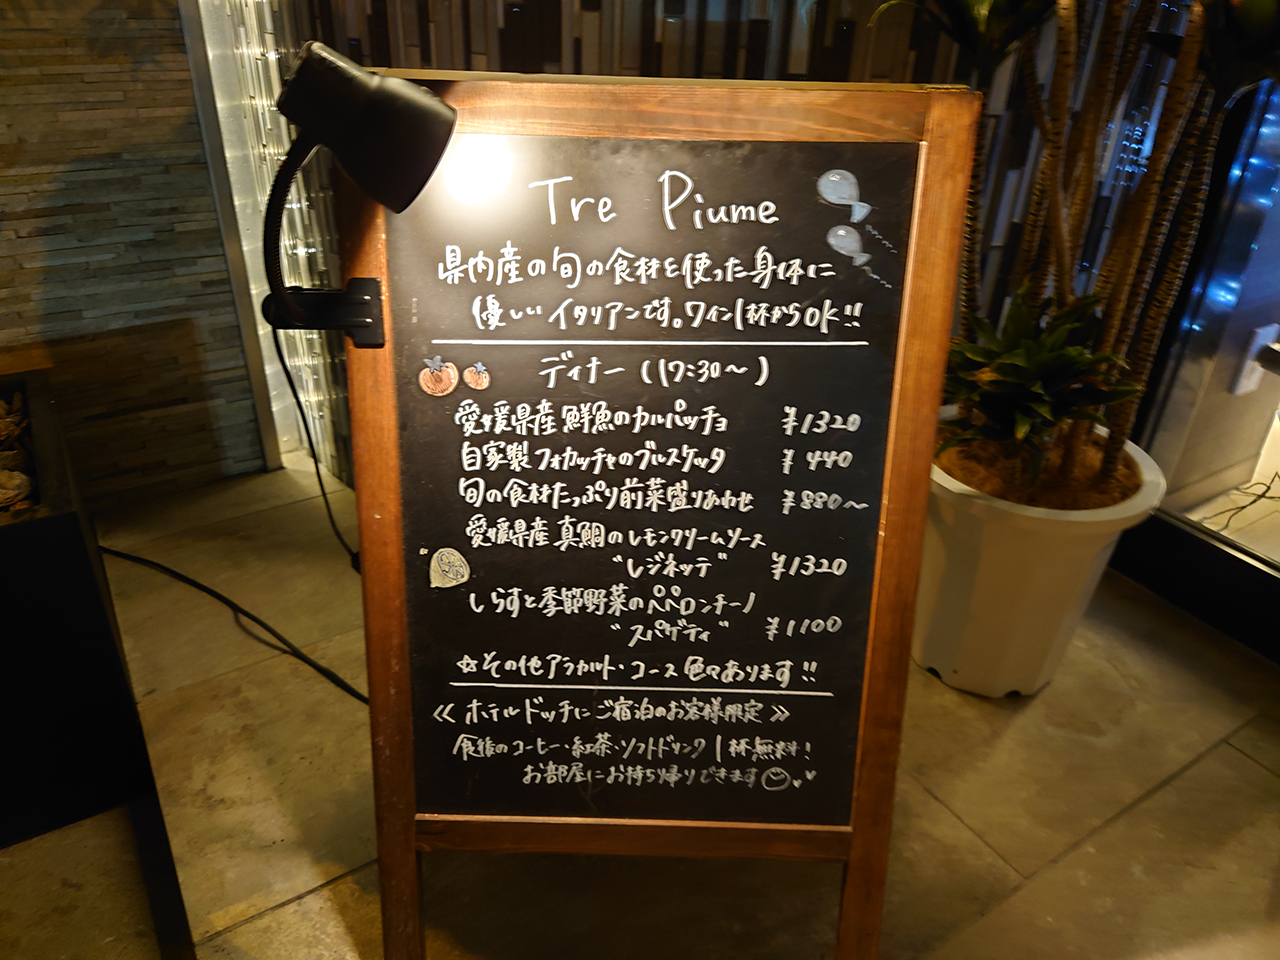 Tre Piume
県内産の旬の食材を使った身体に
優しいイタリアンです。ワイン1杯からOK!!
ディナー (17:30〜)
愛媛県産鮮魚のカルパッチョ ¥1320
自家製フォカッチャのブルスケッタ ¥440
旬の食材たっぷり前菜盛りあわせ ¥880〜
愛媛県産真鯛のレモンクリームソース
"レジネッテ" ¥1320
しらすと季節野菜のペペロンチーノ
"スパゲティ" ¥1100
☆その他アラカルト・コース色々あります!!
≪ホテルドッチにご宿泊のお客様限定≫
食後のコーヒー・紅茶・ソフトドリンク1杯無料!
お部屋にお持ち帰りできます